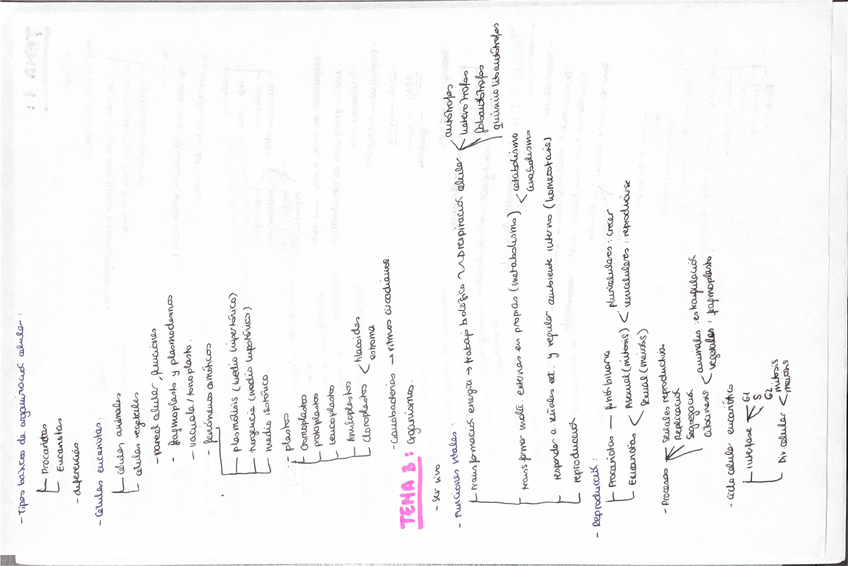 - Tipos básicos de organización celular:
Procariotas
Eucariotas
- diferencias
- Células eucariotas:
células animales
células vegetales
- pared celular, funciones
- fragmoplasto y plasmodesmos
- vacuola / tonoplasto.
- fenómenos osmóticos
- plasmólisis (medio hipertónico)
- turgencia (medio hipotónico)
- medio isotónico.
- plastos
Cromoplastos
protoplastos
Leucoplastos
Amiloplastos
Cloroplastos < tilacoides
estroma
- Cianobacterias → ritmos circadianos.
TEMA 3: Organismos.
- Ser vivo
- Funciones vitales:
transformación energía → trabajo biológico ~> respiración celular < autótrofos
heterótrofos
fotoautótrofos
quimiolitoautótrofos
transformar moléc. externas en propias (metabolismo) < catabolismo
anabolismo
responder a estímulos ext. y regular ambiente interno (homeostasis)
reproducción
- Reproducción:
Procariotas — fisión binaria
Eucariotas < Asexual (mitosis) < pluricelulares: crecer
unicelulares: reproducirse
Sexual (meiosis)
- Procesos
Señales reproductivas
Replicación
Segregación
Citocinesis < animales: estrangulación
vegetales: fragmoplasto
- ciclo celular eucariótico
Interfase
G1
S
G2
Div celular < mitosis
meiosis